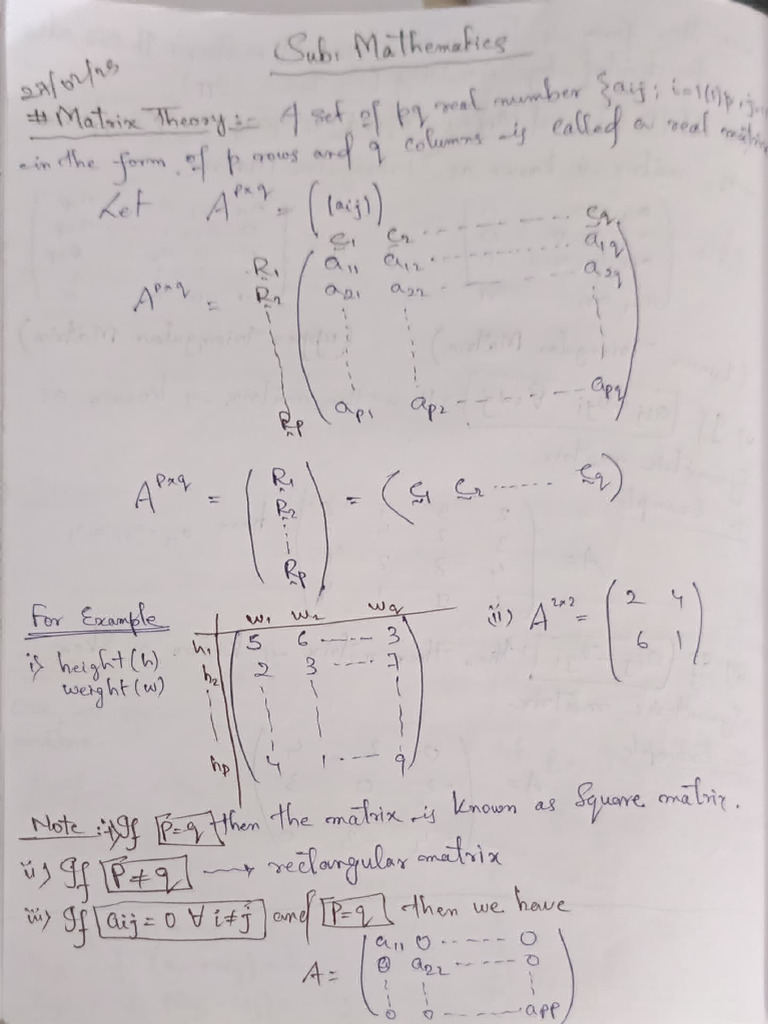 Sub: Mathematics
# Matrix Theory:- A set of pq real number {aij; i=1(1)p, j=
in the form of p rows and q columns is called a real matrix
Let A^{p×q} = ((aij))
C1 C2 ........ Cq
R1 a11 a12 ........ a1q
A^{p×q} = R2 a21 a22 ........ a2q
Rp ap1 ap2 ........ apq
A^{p×q} = (R1 R2 ... Rp) = (C1 C2 ...... Cq)
For Example
i) height (h)
weight (w)
w1 w2 wq
h1 5 6 ---- 3
h2 2 3 ---- 7
hp 4 1 ---- 9
ii) A^{2×2} = (2 4
6 1)
Note :- i) If p=q then the matrix is known as Square matrix.
ii) If P≠q → rectangular matrix
iii) If aij = 0 ∀ i≠j and P=q then we have
a11 0 ----- 0
A = 0 a22 ----- 0
0 0 ---- app